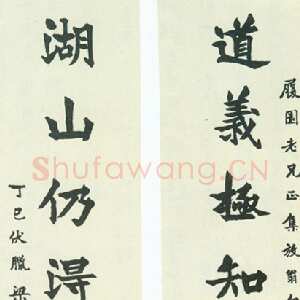 履園老兄正集放翁
道義極知
湖山仍淂
丁巳伏臘梁
Shufawang.CN